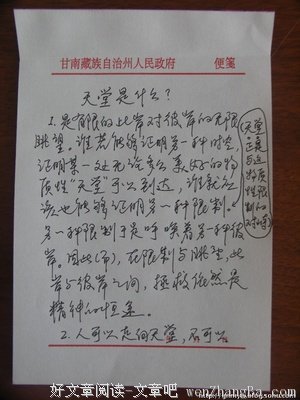 甘南藏族自治州人民政府 便笺
天堂是什么?
1.是有限的此岸对彼岸的无限
眺望。谁若能够证明另一种时空,
证明某一处无论多么美好的物
质性“天堂”可以到达,谁就应
该也能够证明另一种限制。
另一种限制于是呼唤着另一种彼
岸。因此,在限制与眺望、此
岸与彼岸之间,拯救依然是
精神的恒途。
2.人可以走向天堂,不可以
天堂
与
物质
性
限
制的
对峙
好文章阅读-文章吧 wenZhangBa.com